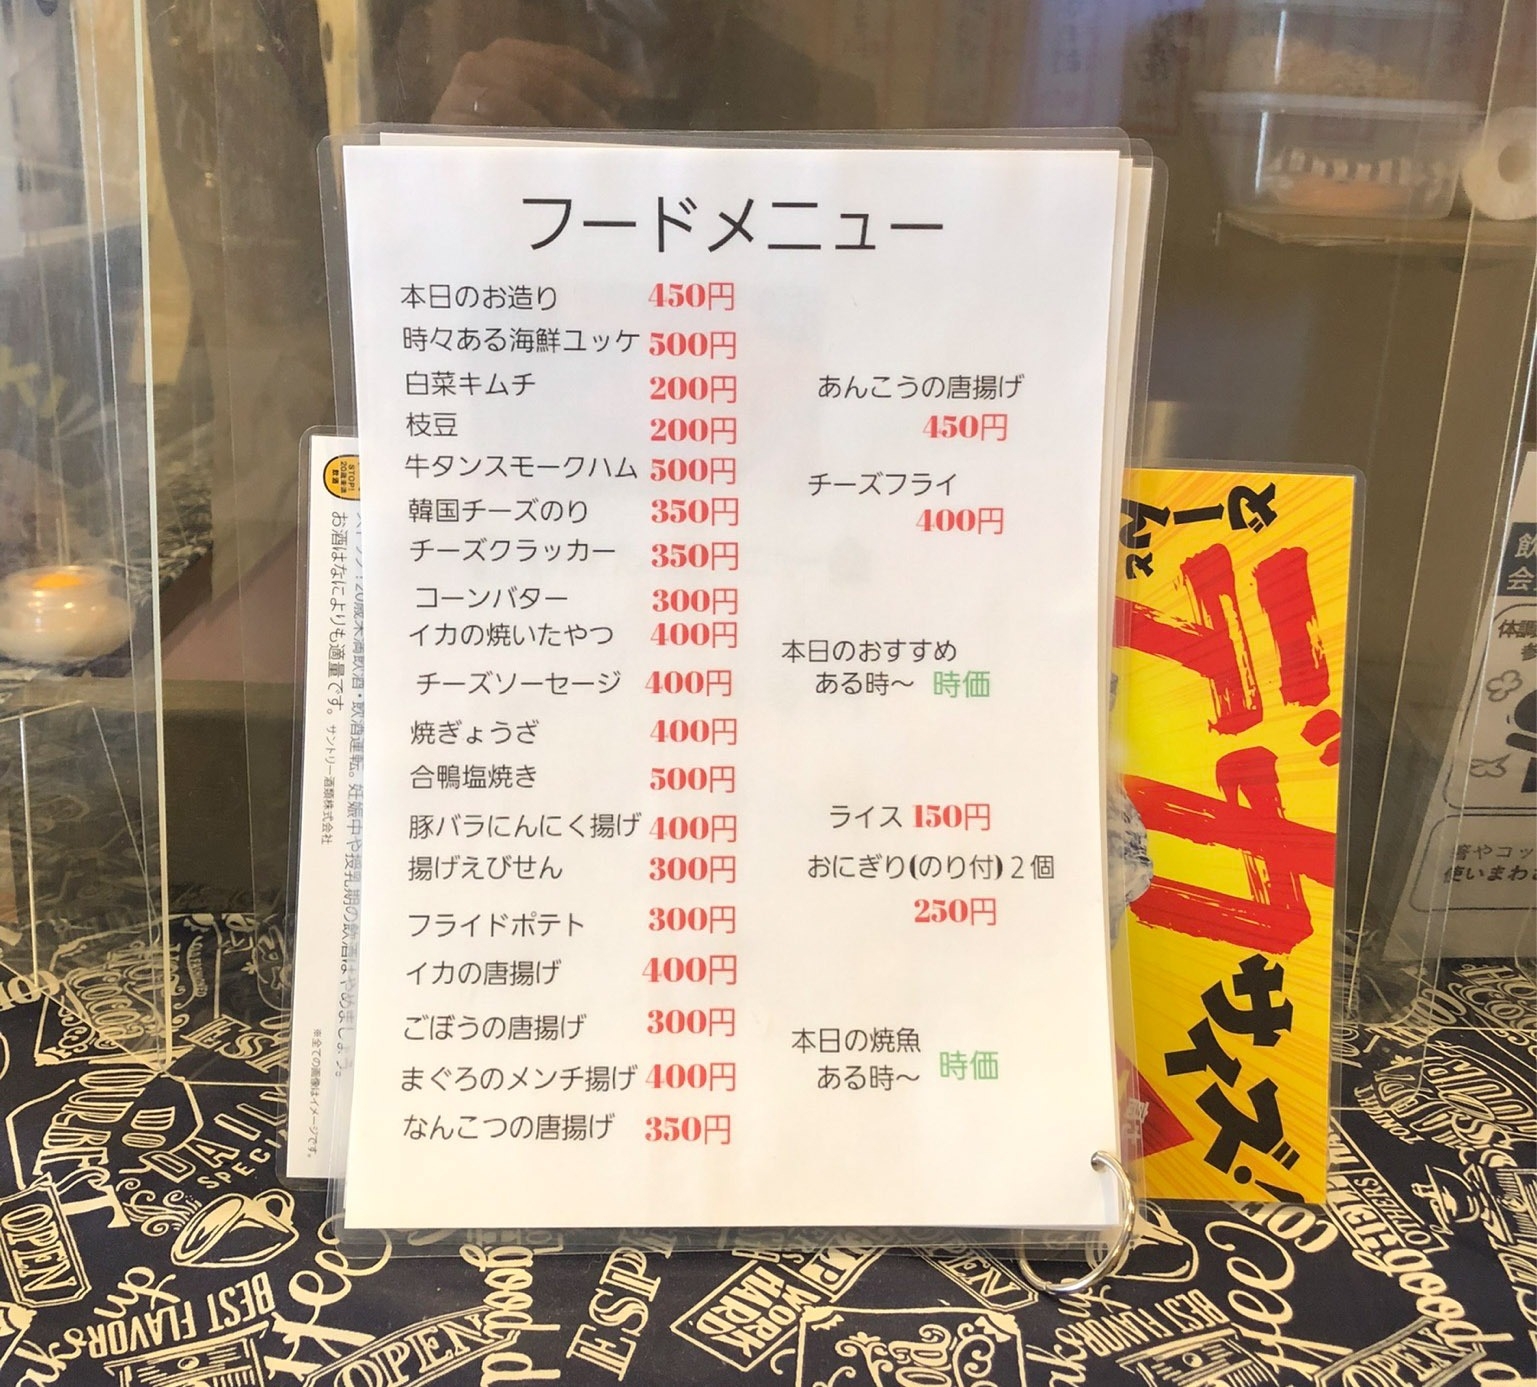 フードメニュー
本日のお造り 450円
時々ある海鮮ユッケ 500円
白菜キムチ 200円
枝豆 200円
牛タンスモークハム 500円
韓国チーズのり 350円
チーズクラッカー 350円
コーンバター 300円
イカの焼いたやつ 400円
チーズソーセージ 400円
焼ぎょうざ 400円
合鴨塩焼き 500円
豚バラにんにく揚げ 400円
揚げえびせん 300円
フライドポテト 300円
イカの唐揚げ 400円
ごぼうの唐揚げ 300円
まぐろのメンチ揚げ 400円
なんこつの唐揚げ 350円
あんこうの唐揚げ
450円
チーズフライ
400円
本日のおすすめ
ある時〜 時価
ライス 150円
おにぎり(のり付)2個
250円
本日の焼魚
ある時〜 時価
どーんと
デカ
サイズ!
STOP!
20歳未満
飲酒
20歳未満飲酒・飲酒運転。妊娠中や授乳期の飲酒はやめましょう。
お酒はなによりも適量です。サントリー酒類株式会社
※全ての画像はイメージです。
使いまわ
OPEN
BEST FLAVOR
DAILY
SPECI
GOURMET
good
ESP
WORK
HARD
OPEN
BEST FLAVORS
good
OPEN